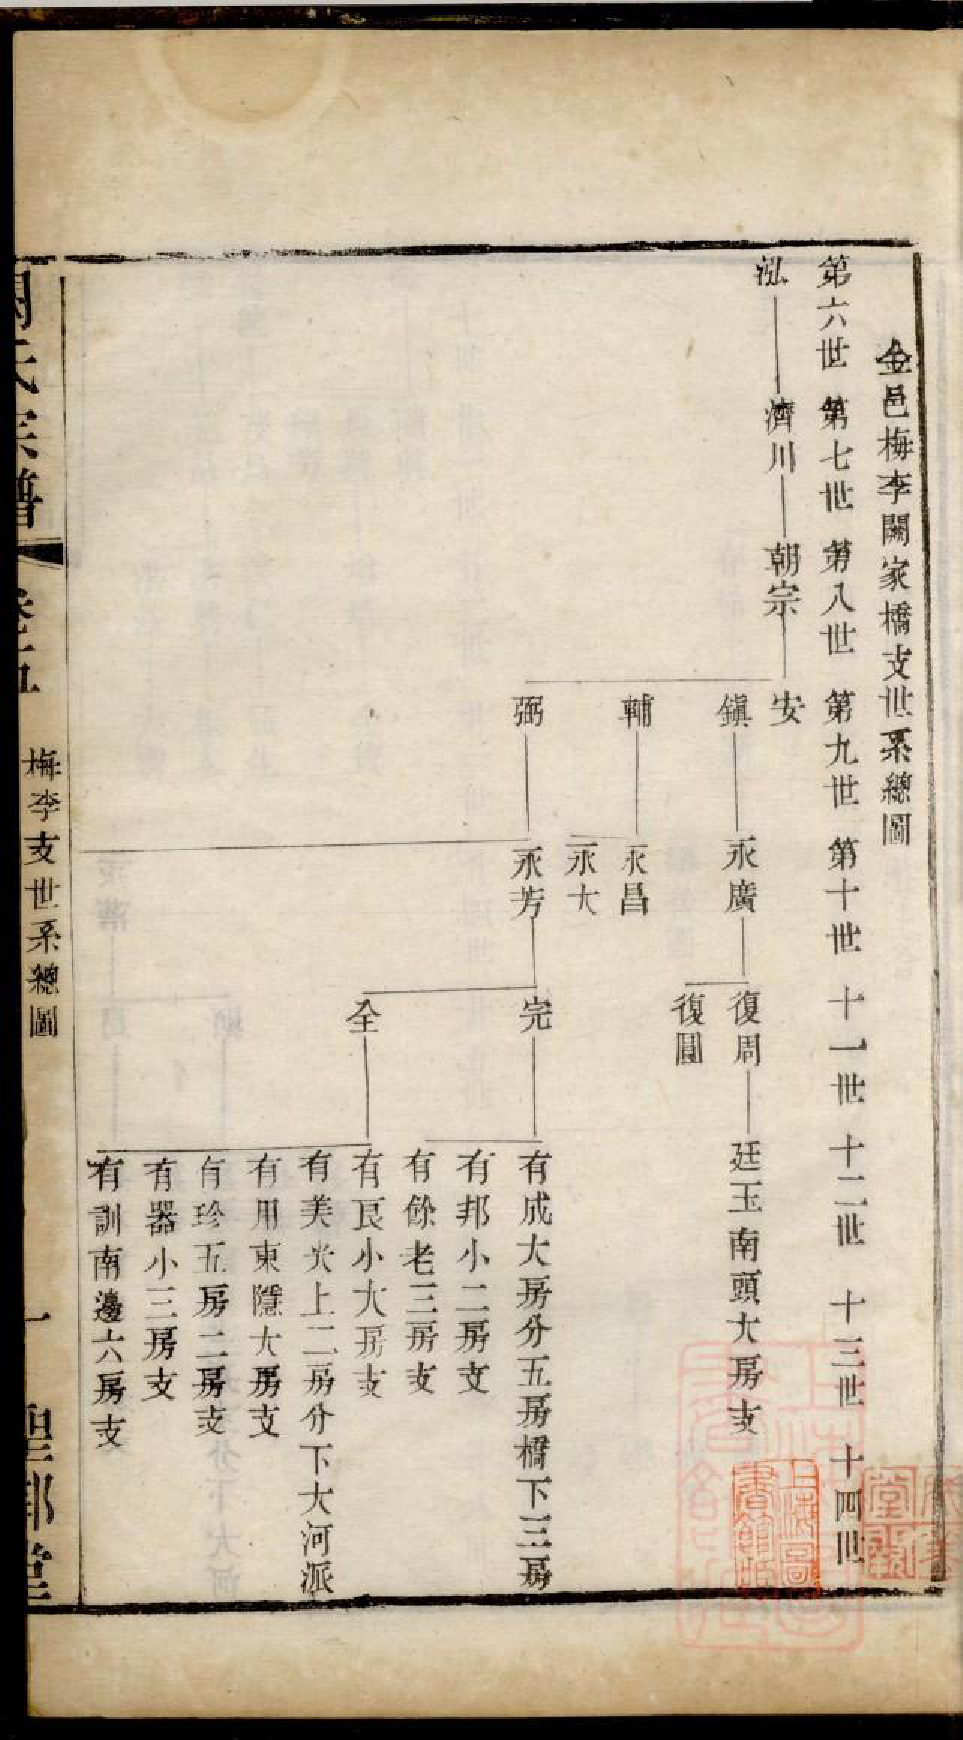 金邑梅李闕家橋支世系總圖
第六世 第七世 第八世 第九世 第十世 十一世 十二世 十三世 十四世
泓 濟川 朝宗 安
鎮 永廣 復周 廷玉南頭大房支
復圓
輔 永昌
永大
弼 永芳 完 有成大房分五房橋下三房
有邦小二房支
有餘老三房支
全 有良小大房支
有美光上二房分下大河派
有用東隱大房支
有珍五房二房支
有器小三房支
有訓南邊六房支
氏宗譜 卷五 梅李支世系總圖 一 聖郡堂
上海圖書館藏